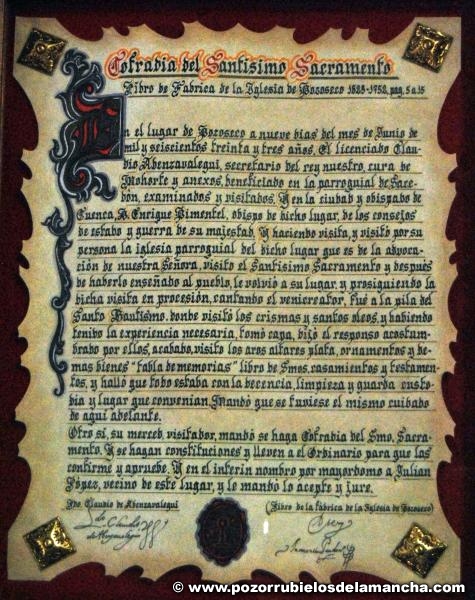 Cofradia del Santisimo Sacramento
Libro de Fabrica de la Iglesia de Pozoseco 1628-1752, pag, 5 a 15
En el lugar de Pozoseco a nueve dias del mes de Junio de
mil y seiscientos treinta y tres años. El licenciado Clau-
dio, Abenzavalegui, secretario del rey nuestro, cura de
Mohorte y anexos, beneficiado en la parroquial de Sace-
dón, examinados y visitados. Y en la ciudad y obispado de
Cuenca, D. Enrique Pimentel, obispo de dicho lugar, de los consejos
de estado y guerra de su majestad. Y haciendo visita, y visitó por su
persona la iglesia parroquial del dicho lugar que es de la advoca-
ción de nuestra Señora, visitó el Santisimo Sacramento y después
de haberlo enseñado al pueblo, le volvió a su lugar, y prosiguiendo la
dicha visita en procesión, cantando el venicreator, fué a la pila del
Santo Bautismo, donde visitó los crismas y santos oleos, y habiendo
tenido la experiencia necesaria, tomó capa, dijo el responso acostum-
brado por ellos, acabado, visitó los aros altares plata, ornamentos y de-
mas bienes "tabla de memorias" libro de Smos, casamientos y testamen-
tos, y halló que todo estaba con la decencia, limpieza y guarda custo-
dia y lugar que convenian. Mandó que se tuviese el mismo cuidado
de aqui adelante.
Otro si, su merced, visitador, mandó se haga Cofradia del Smo, Sacra-
mento. Y se hagan constituciones y lleven a el Ordinario para que las
confirme y apruebe. Y en el interin nombró por mayordomo a Julian
López, vecino de este lugar, y le mandó lo acepte y jure.
Fdo. Claudio de Abenzavalegui
(Libro de la Fabrica de la Iglesia de Pozoseco)
© www.pozorrubielosdelamancha.com